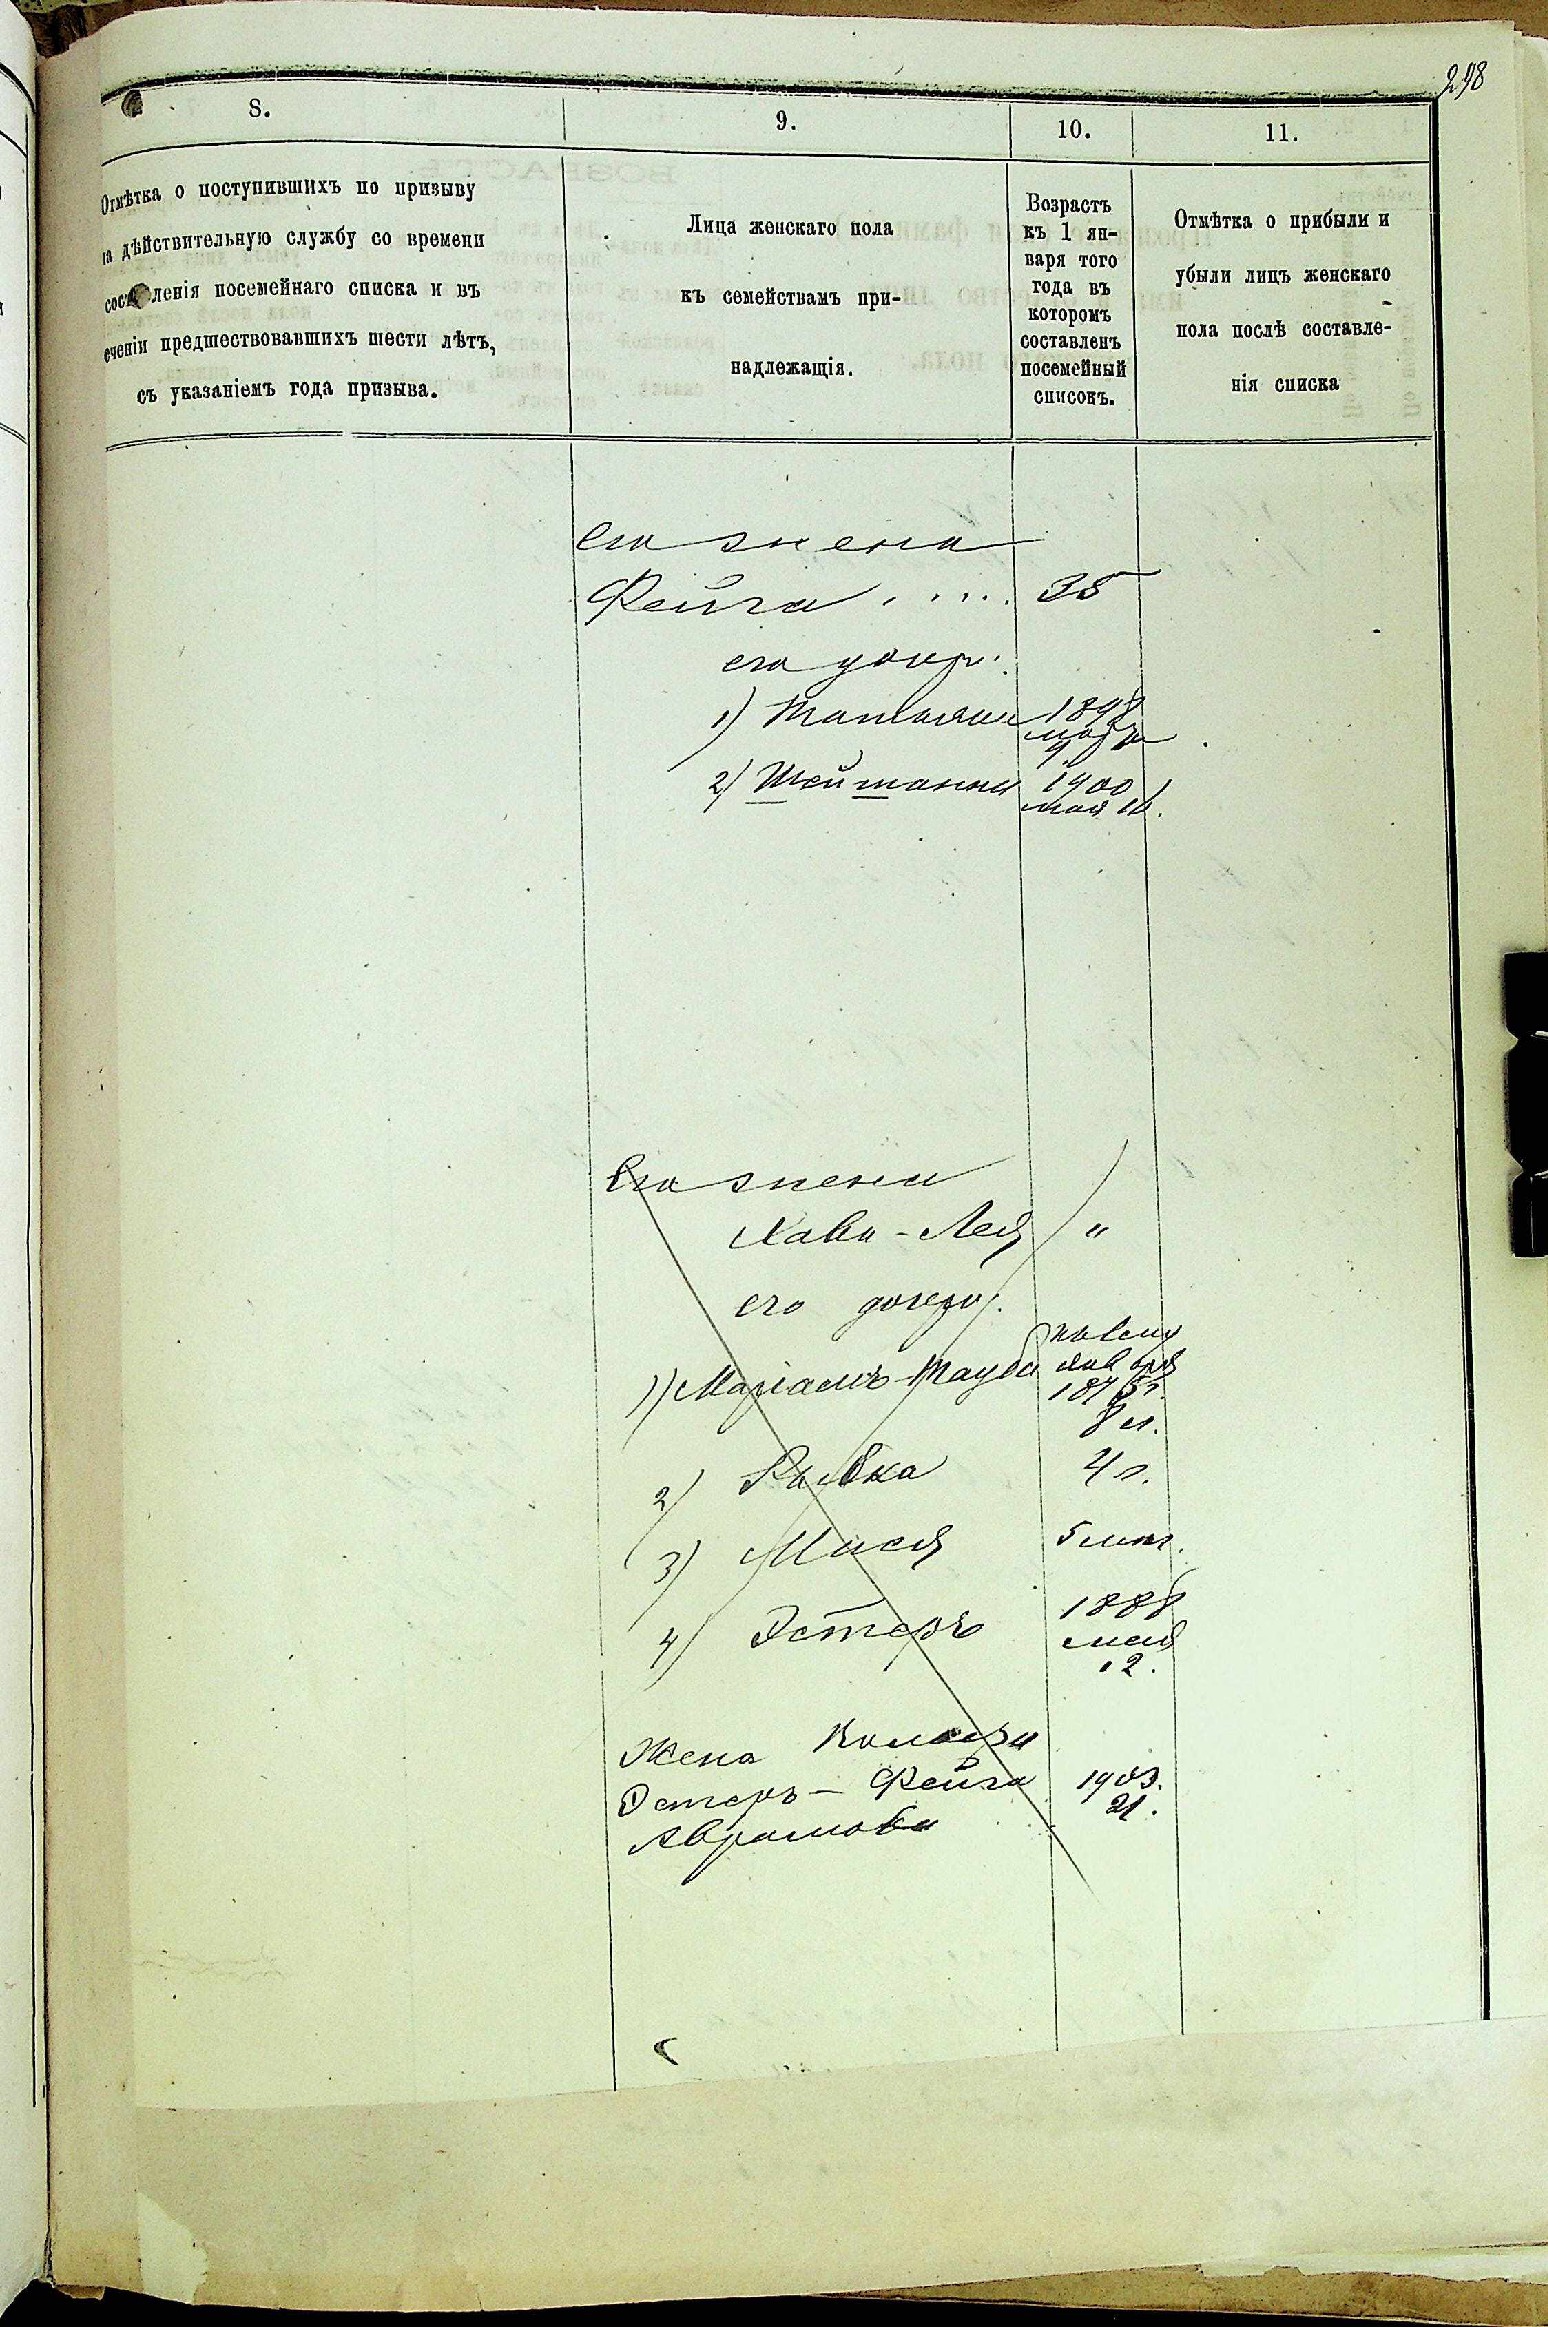 298
8.
9.
10.
11.
Отмѣтка о поступившихъ по призыву
на дѣйствительную службу со времени
составленія посемейнаго списка и въ
еченіи предшествовавшихъ шести лѣтъ,
съ указаніемъ года призыва.
Лица женскаго пола
къ семействамъ при-
надлежащія.
Возрастъ
къ 1 ян-
варя того
года въ
которомъ
составленъ
посемейный
списокъ.
Отмѣтка о прибыли и
убыли лицъ женскаго
пола послѣ составле-
нія списка
его жена
Фейга . . . . . 35
его дочери:
1) 1898
марта
9
2) 1900
мая 16.
Его жена
Хава-Лея "
его дочери:
1) Маріамъ-Тауба
января
187
8 л.
2) Ривка 4 г.
3) Мися 5 мѣс.
4) Эстеръ 1888
мая
12.
Жена
Эстеръ-Фейга 1903.
Аврамова 21.